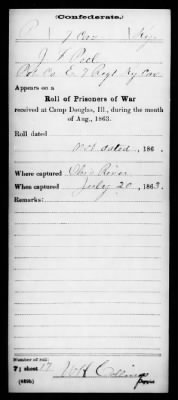 (Confederate.)
P | 7 Cav | Ky.
J. F. Peel
Pvt. Co. E 7 Regt Ky Cav
Appears on a
Roll of Prisoners of War
received at Camp Douglas, Ill., during the month
of Aug., 1863.
Roll dated
Not dated, 186 .
Where captured Ohio River
When captured July 20, 1863.
Remarks:
Number of roll:
7; sheet 17